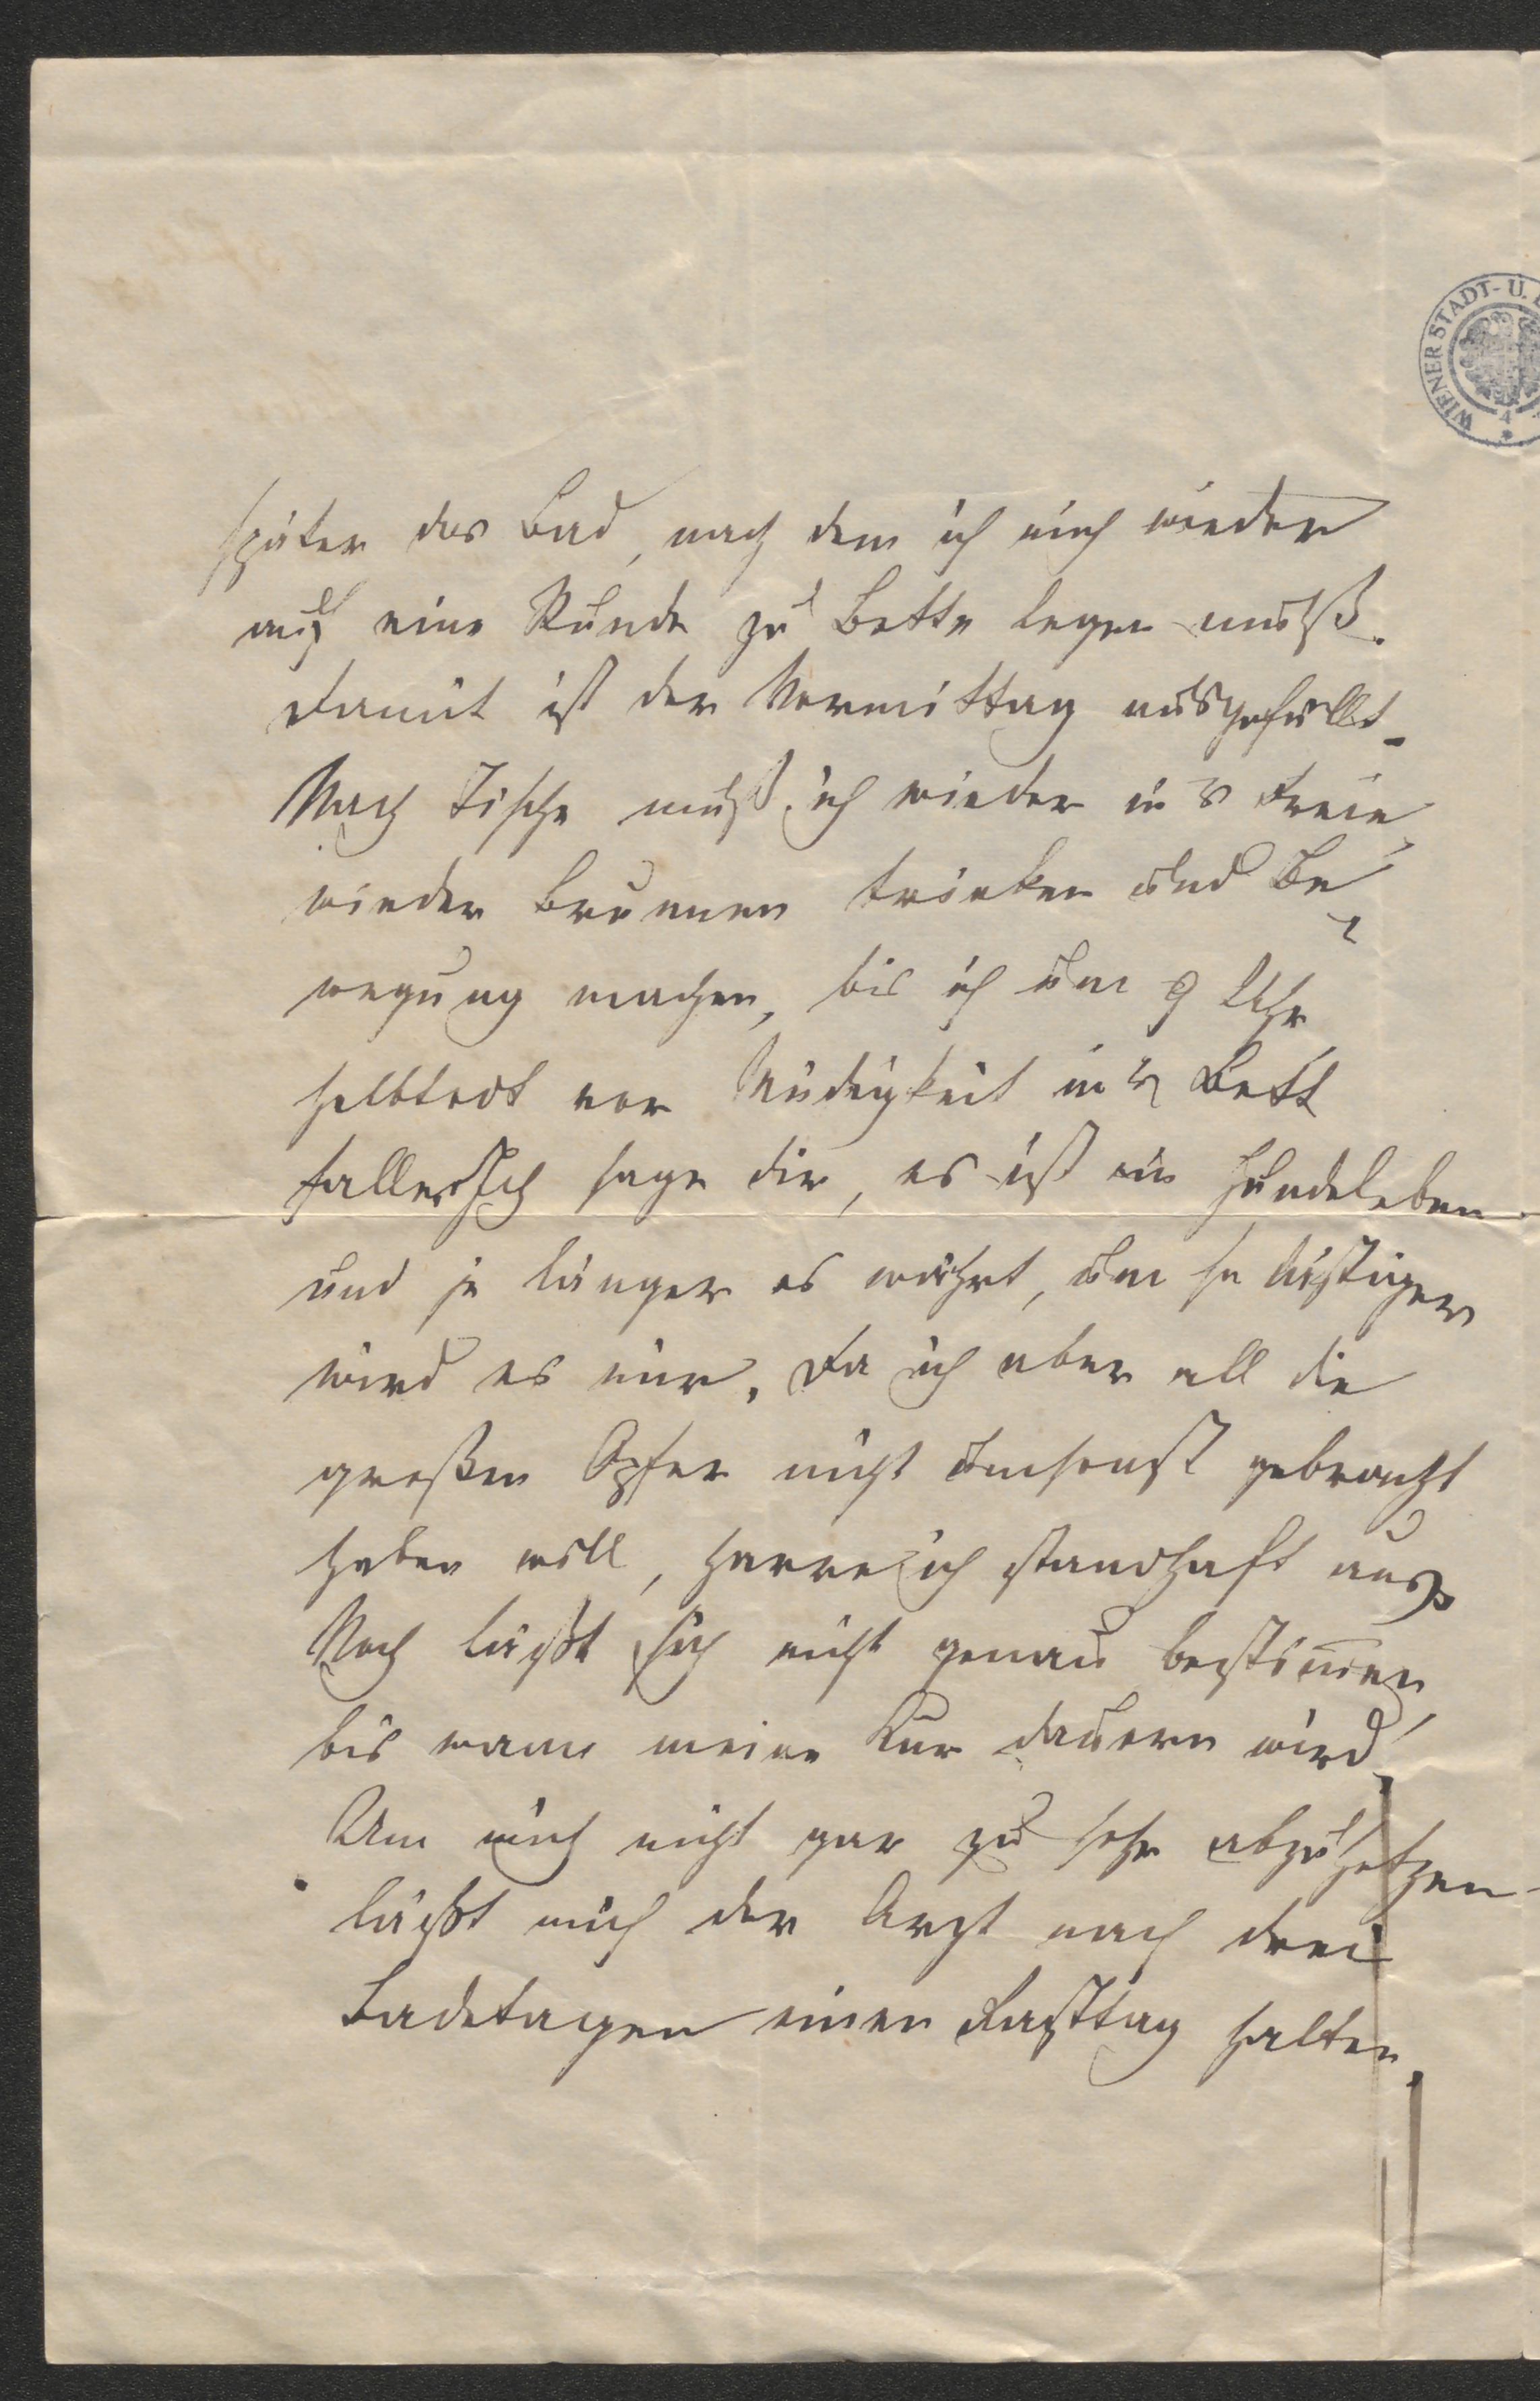 WIENER STADT- U.
später das Bad, nach dem ich mich wieder
auf eine Stunde zu Bette legen muß.
Damit ist der Vormittag ausgefüllt.
Nach Tische muß ich wieder in's Freie,
wieder Brunnen trinken und Be-
wegung machen, bis ich um 9 Uhr
halbtodt vor Müdigkeit in's Bett
falle. Ich sage dir, es ist ein Hundeleben
und je länger es währt, um so lästiger
wird es mir. Da ich aber all die
großen Opfer nicht umsonst gebracht
haben will, harre ich standhaft aus.
Noch läßt sich nicht genau bestimen,
bis wann meine Kur dauern wird.
Um mich nicht gar zu sehr abzuhetzen
läßt mich der Arzt nach drei
Badetagen einen Rasttag halten,